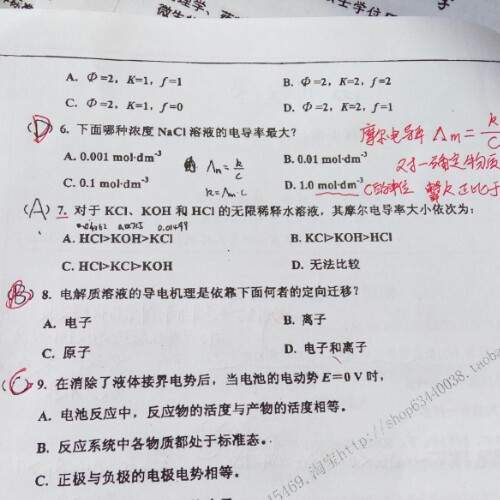 A. Φ=2，K=1，f=1 B. Φ=2，K=2，f=2
C. Φ=2，K=1，f=0 D. Φ=2，K=2，f=1
(D) 6. 下面哪种浓度 NaCl 溶液的电导率最大？ 摩尔电导率 Λm = k/C
A. 0.001 mol·dm⁻³ Λm = k/C B. 0.01 mol·dm⁻³ 对一确定物质
κ=Λm·C
C. 0.1 mol·dm⁻³ D. 1.0 mol·dm⁻³ C的单位 k正比于
(A) 7. 对于 KCl、KOH 和 HCl 的无限稀释水溶液，其摩尔电导率大小依次为：
0.01499
A. HCl>KOH>KCl B. KCl>KOH>HCl
C. HCl>KCl>KOH D. 无法比较
(B) 8. 电解质溶液的导电机理是依靠下面何者的定向迁移？
A. 电子 B. 离子
C. 原子 D. 电子和离子
(C) 9. 在消除了液体接界电势后，当电池的电动势 E=0 V 时，
A. 电池反应中，反应物的活度与产物的活度相等。
B. 反应系统中各物质都处于标准态。
C. 正极与负极的电极电势相等。
5469.淘宝http://shop63440038.taoba